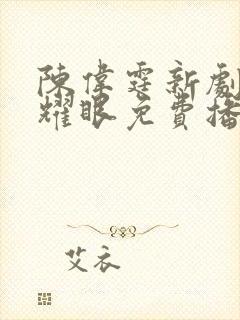 陳偉霆新劇
耀眼免費播
艾衣